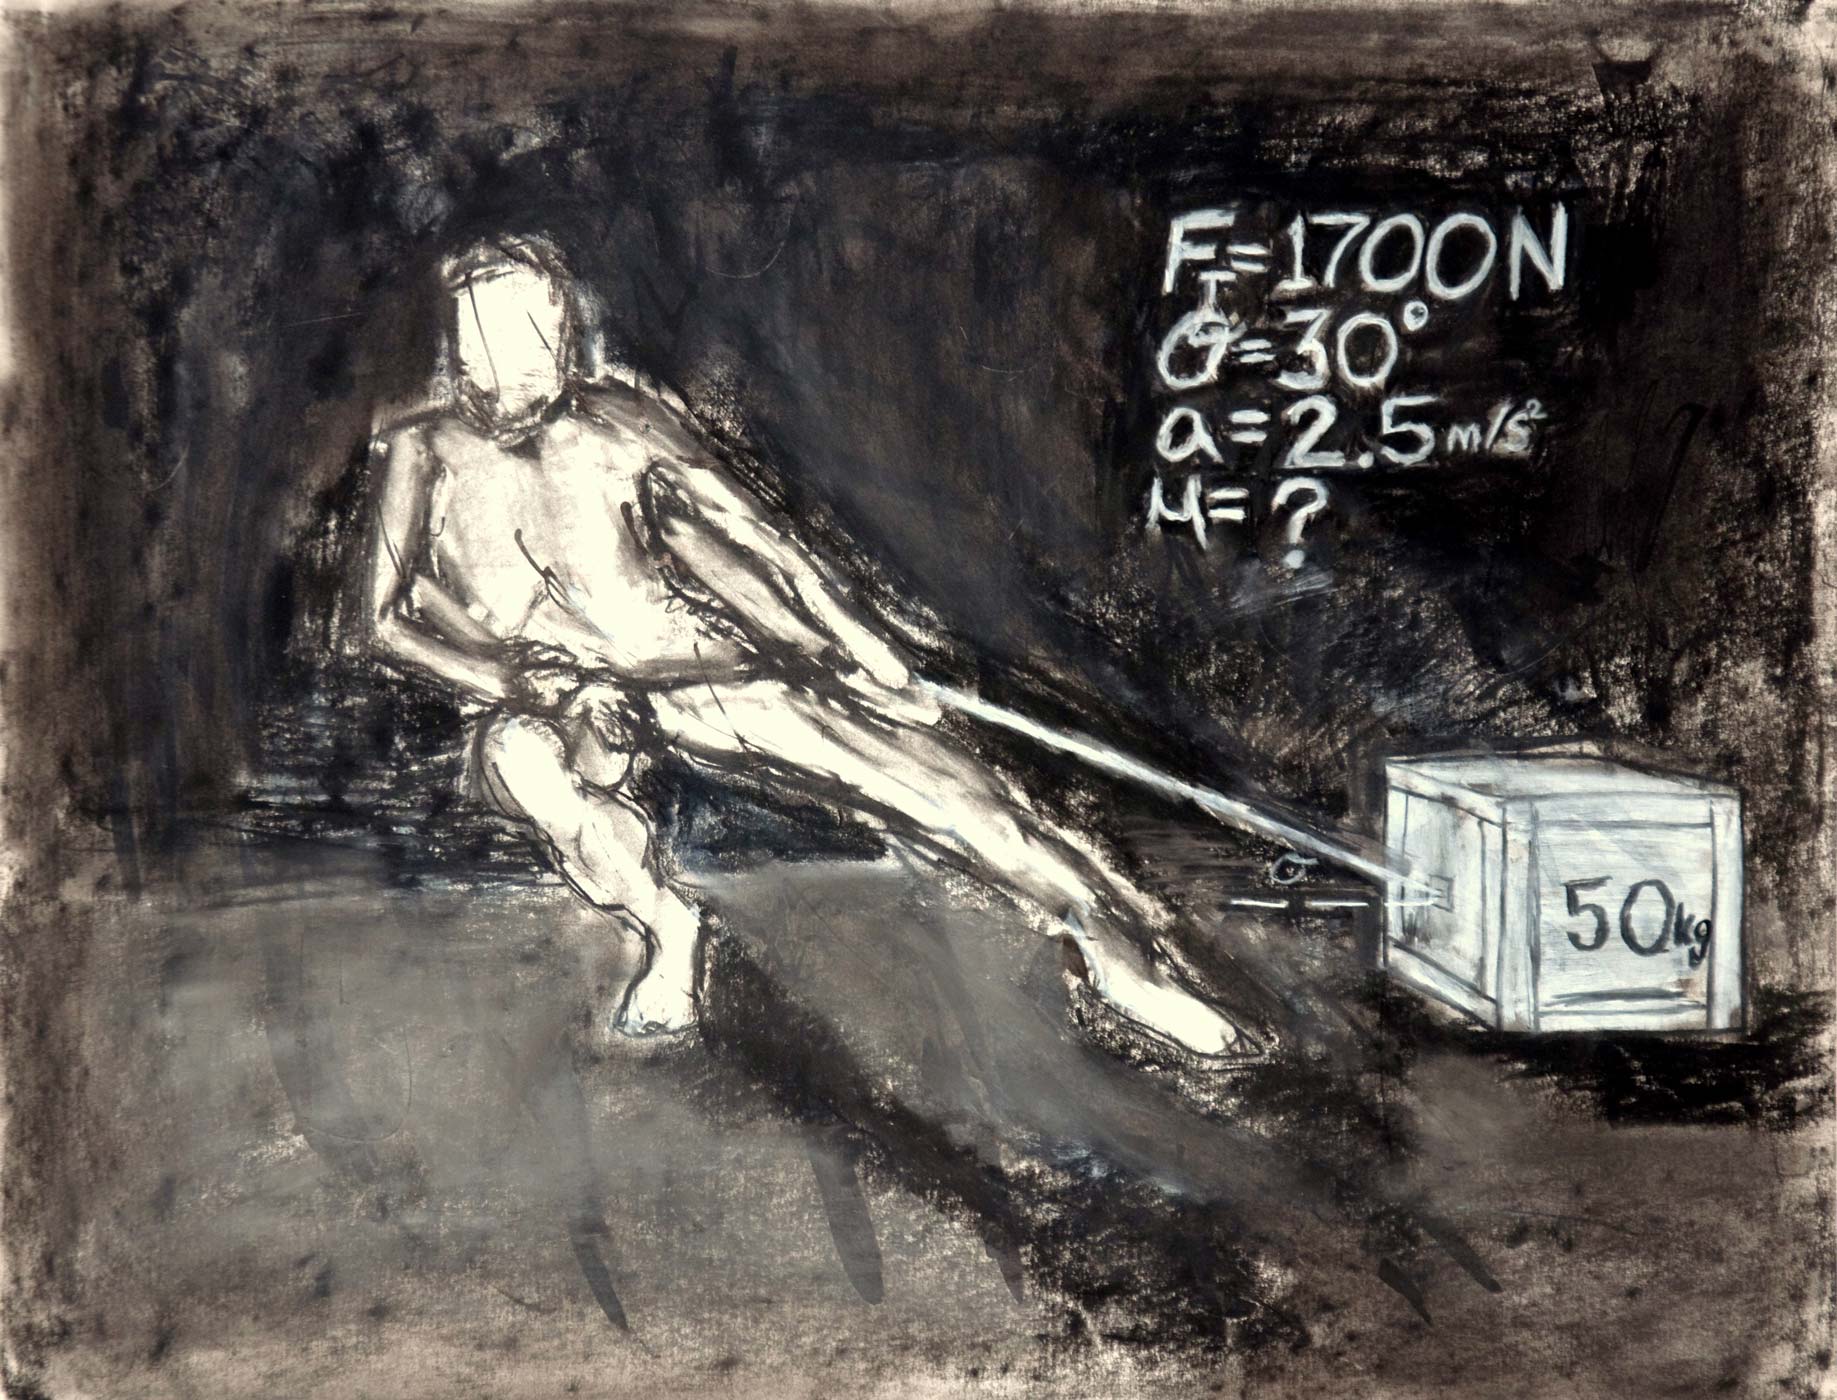 F_T=1700N
θ=30°
a=2.5m/s²
μ=?
θ
50kg